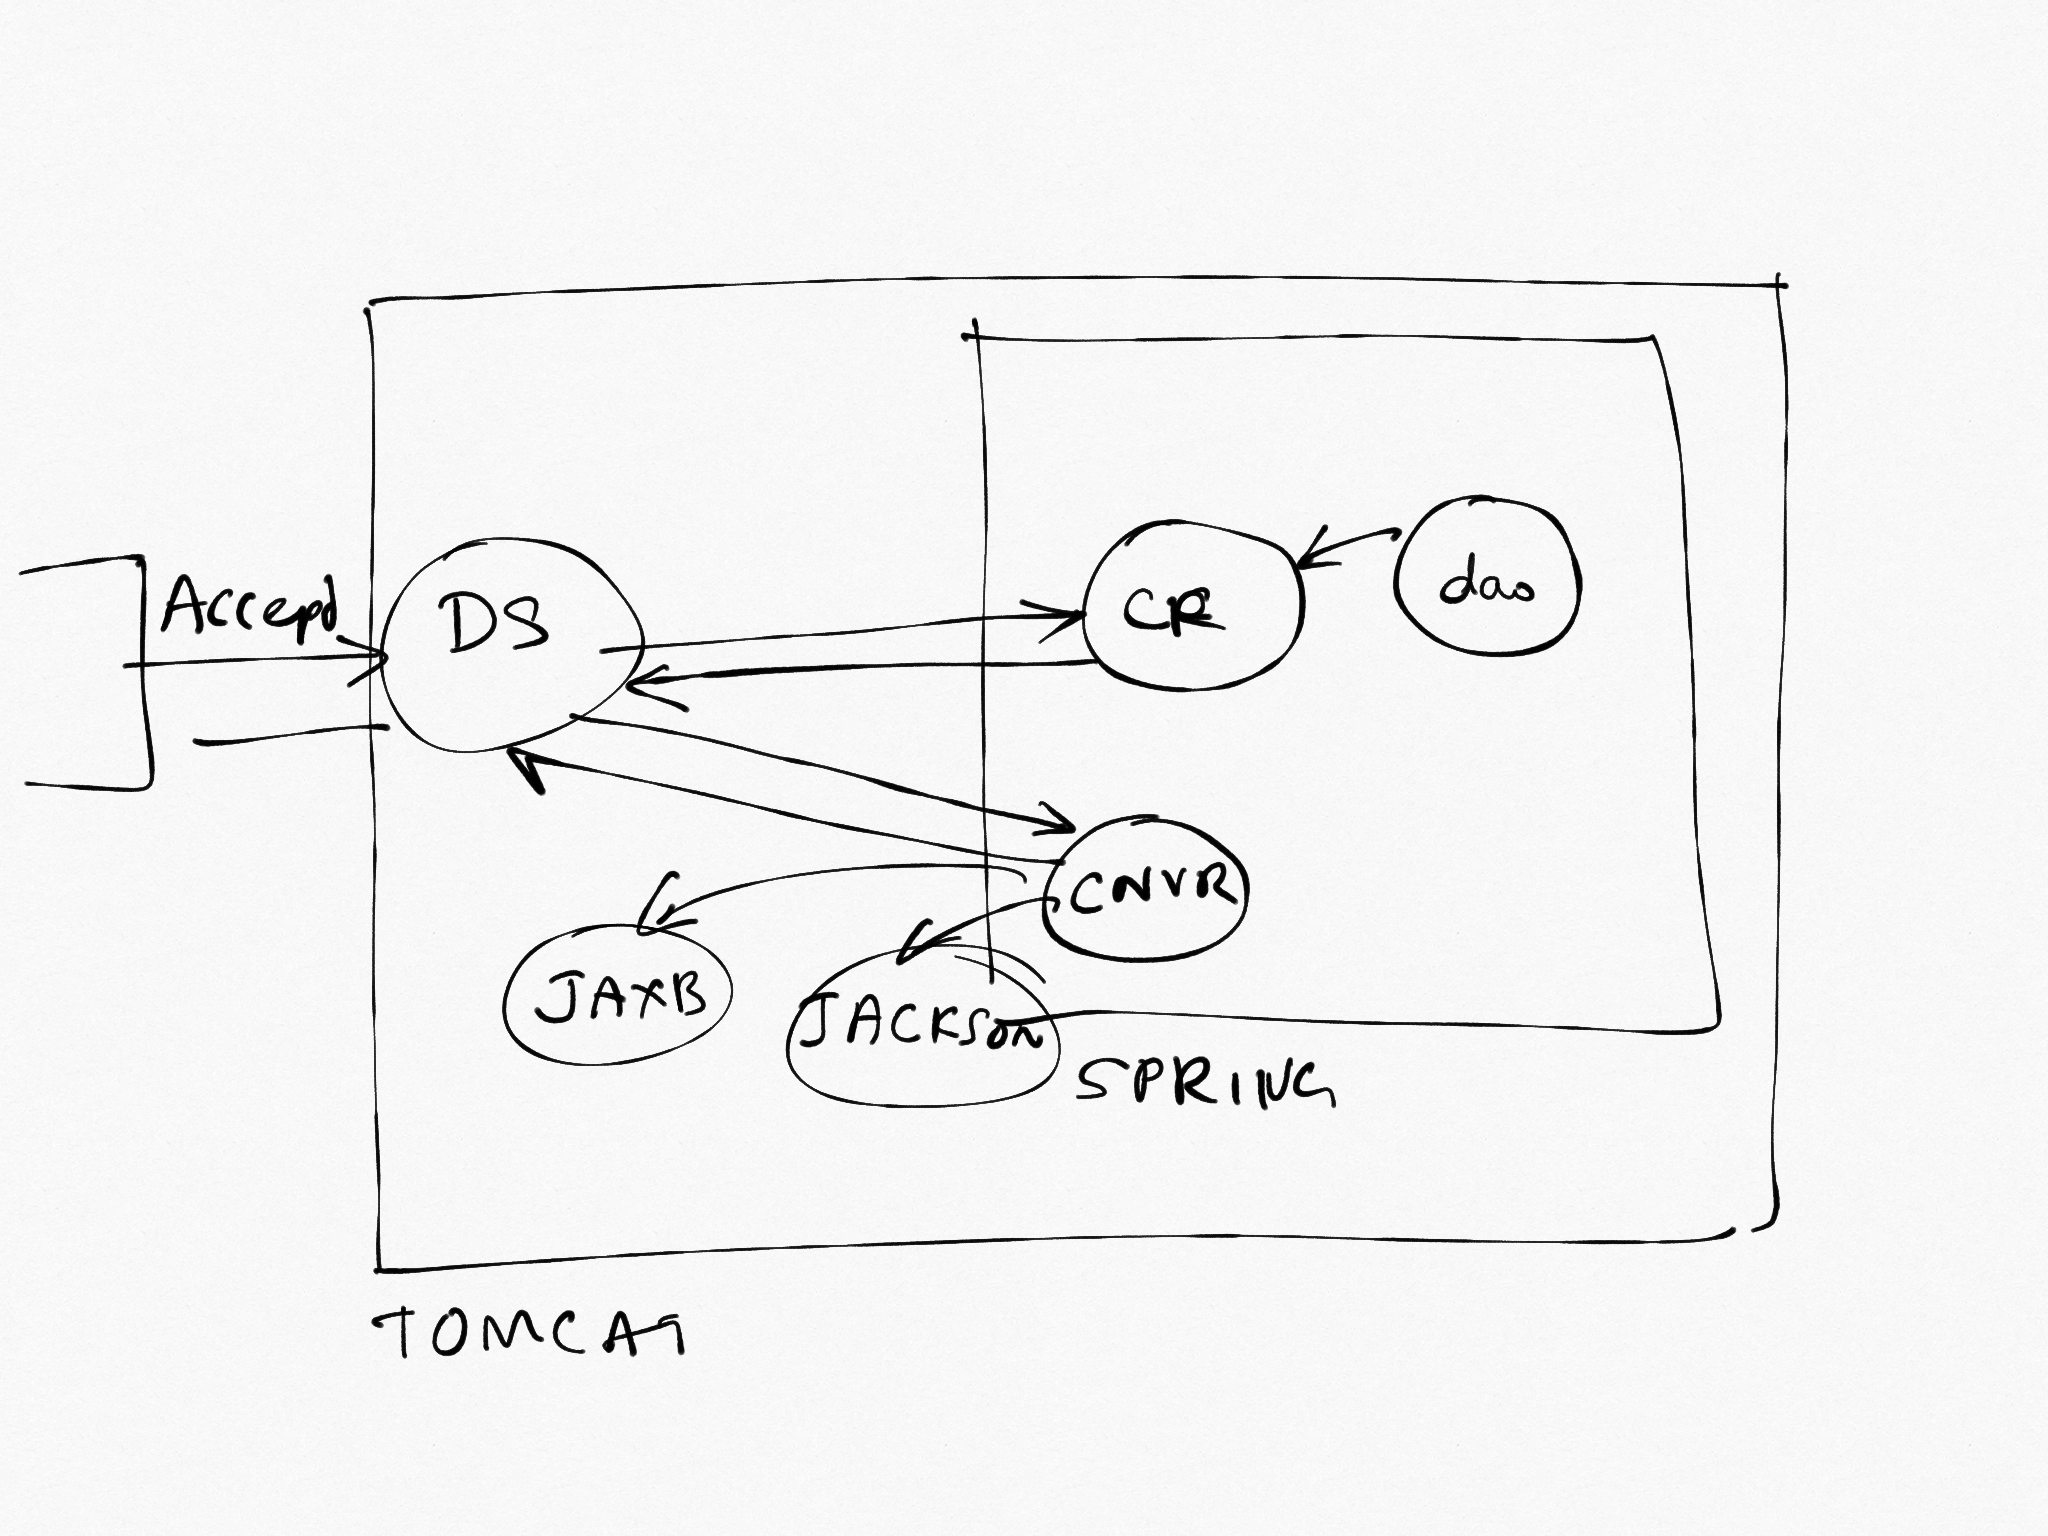 Accept
DS
CR
dao
CNVR
JAXB
JACKSon
SPRING
TOMCAT